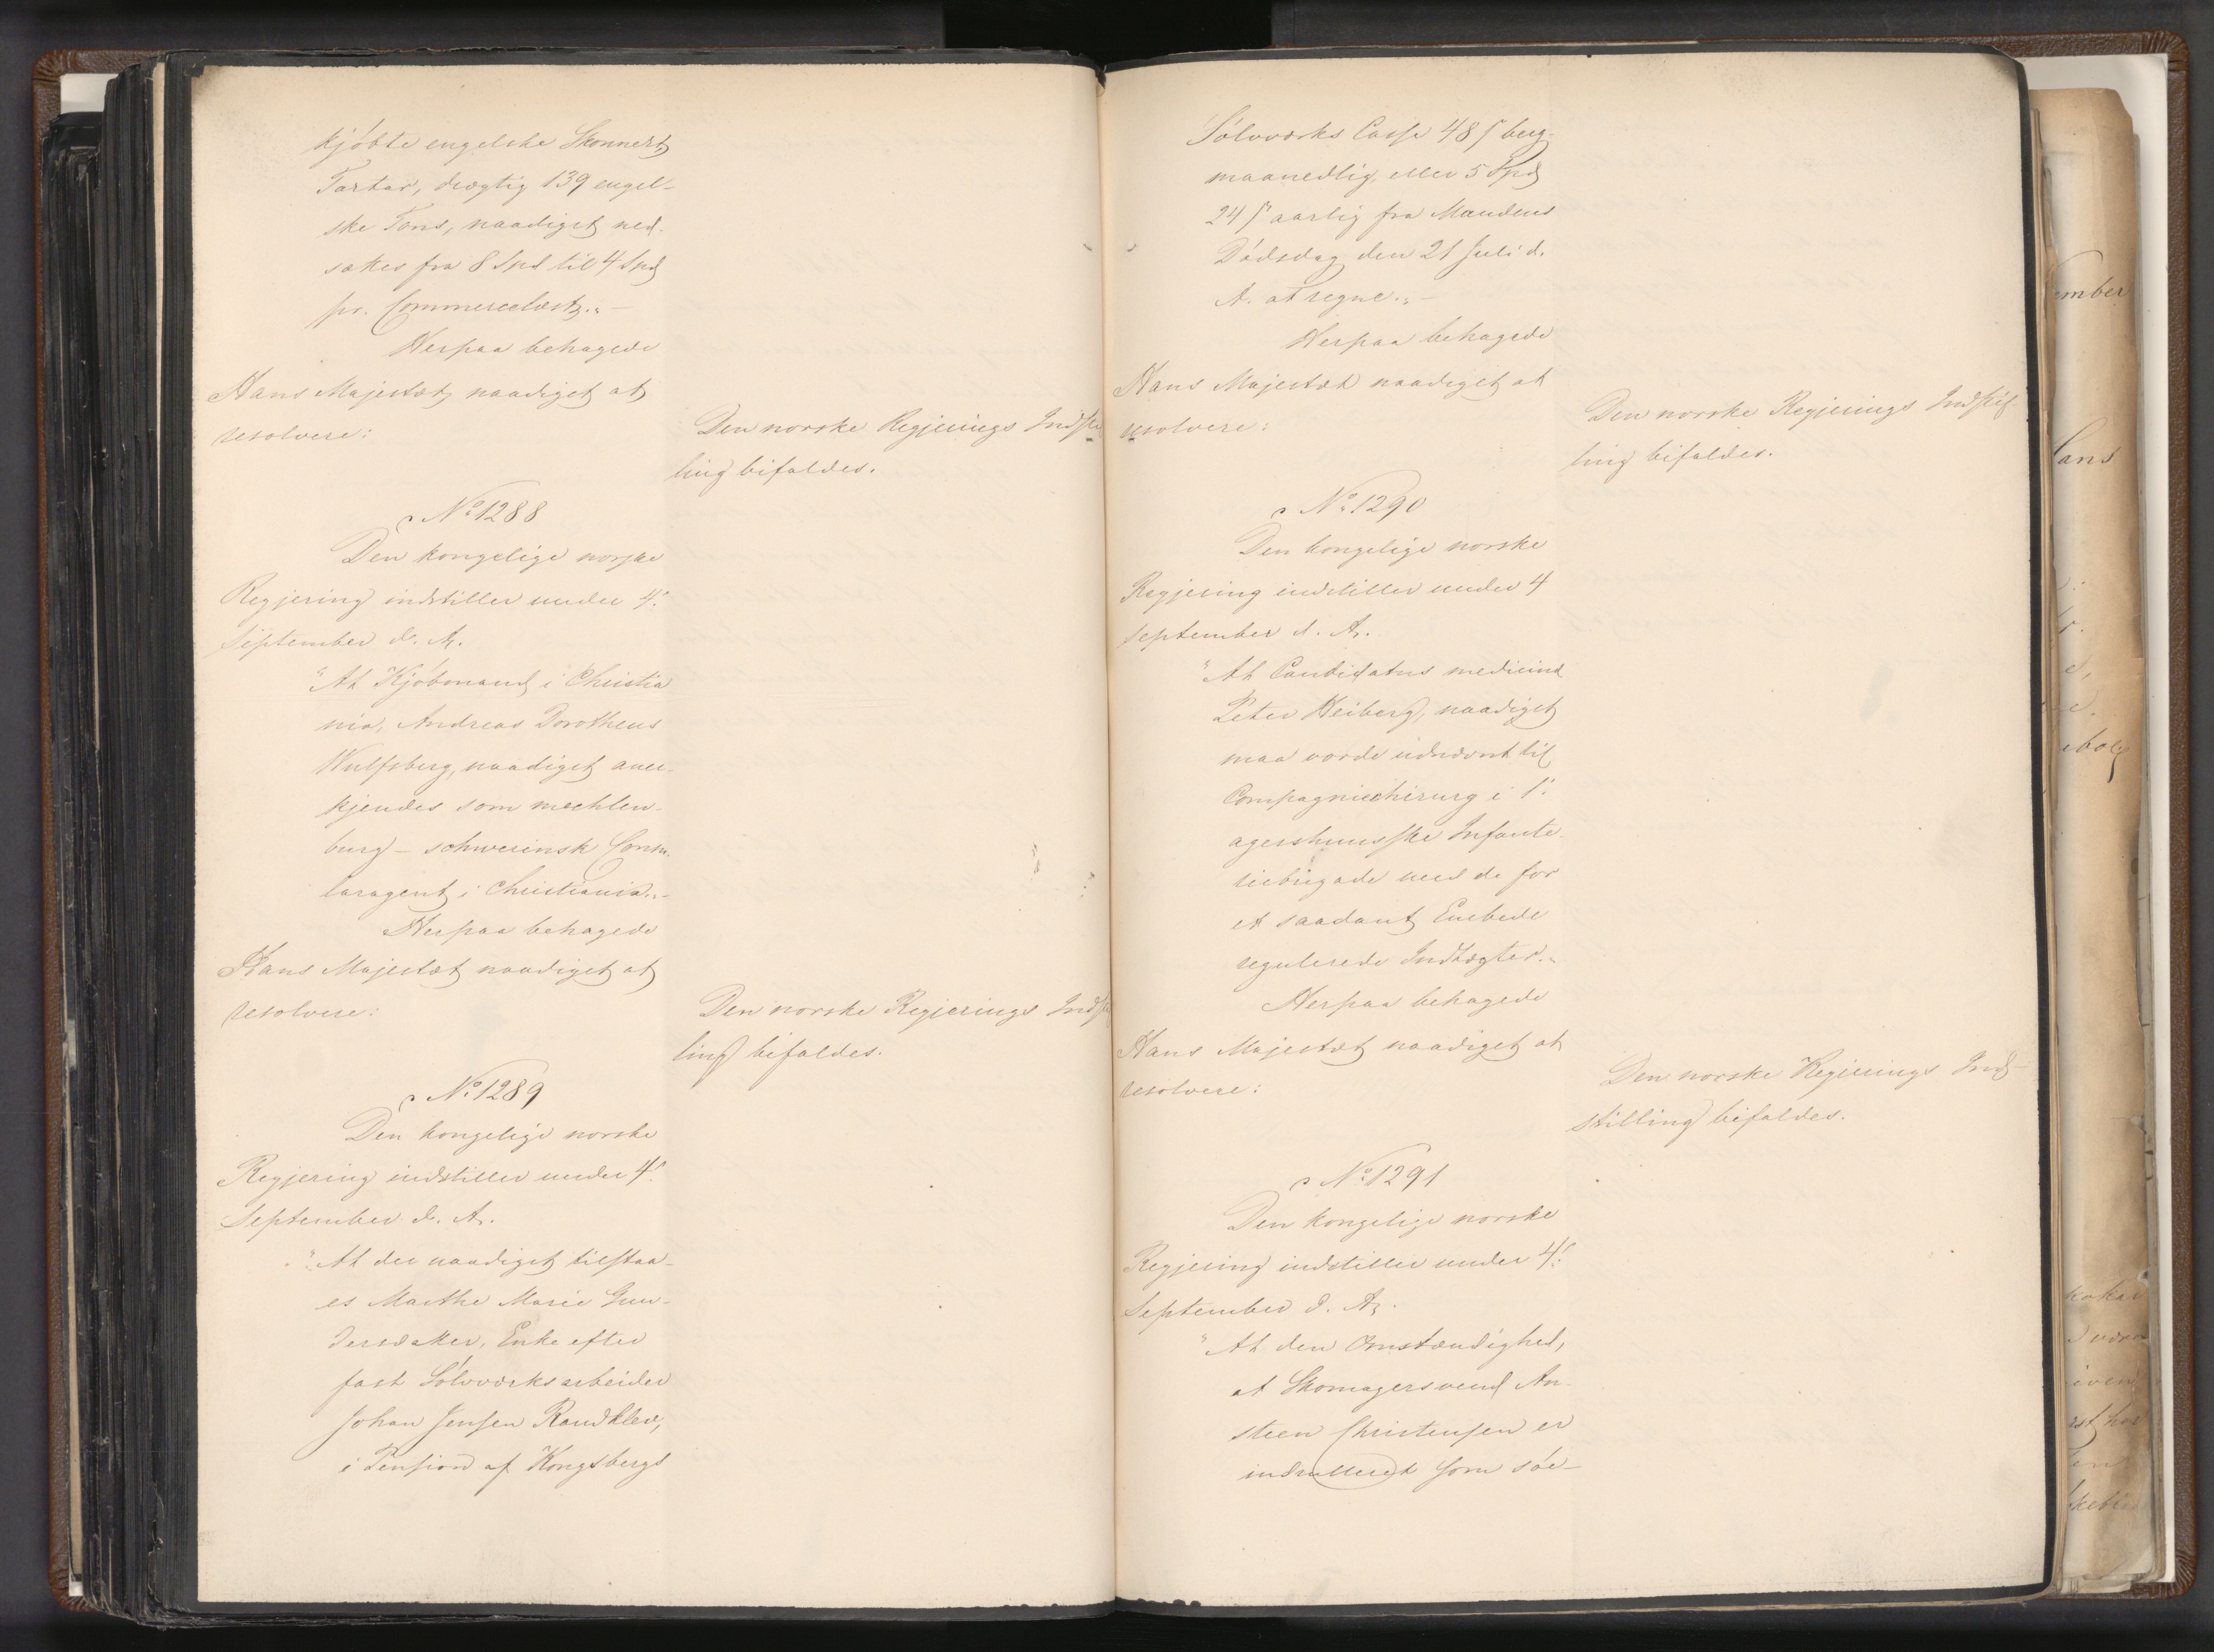 kjøbte engelske Skonnert,
Tartar, drægtig 139 engel-
ske Tons, naadigst ned-
sættes fra 8 Spd til 4 Spd
pr. Commercelæst."-
Herpaa behagede
Hans Majestæt naadigst at
resolvere:
Den norske Regjerings Indstil
ling bifaldes.
No 1288
Den kongelige norske
Regjering indstiller under 4.
September d. A.
"At Kjøbmand i Christia
nia, Andreas Dorotheus
Wulfsberg, naadigst aner-
kjendes som mechlen-
burg-schwerinsk Consu-
laragent i Christiania."-
Herpaa behagede
Hans Majestæt naadigst at
resolvere:
Den norske Regjerings Indstil
ling bifaldes.
No 1289
Den kongelige norske
Regjering indstiller under 4.
September d. A.
"At der naadigst tilstaa-
es Marthe Marie Gun-
dersdatter, Enke efter
fast Sølvværksarbeider
Johan Jensen Randklev,
i Pension af Kongsbergs
Sølvværks Casse 48 ſ beg-
maanedlig, eller 5 Spd
24 ſ aarlig fra Mandens
Dødsdag den 21 Juli d.
A. at regne."-
Herpaa behagede
Hans Majestæt naadigst at
resolvere:
Den norske Regjerings Indstil-
ling bifaldes.
No 1290
Den kongelige norske
Regjering indstiller under 4
September d. A.
"At Candidatus medicinæ
Peter Heiberg, naadigst
maa vorde udnævnt til
Compagniechirurg i 1.
agershuusske Infante-
riebrigade med de for
et saadant Embede
regulerede Indtægter."
Herpaa behagede
Hans Majestæt naadigst at
resolvere:
Den norske Regjerings Ind-
stilling bifaldes.
No 1291
Den kongelige norske
Regjering indstiller under 4.
September d. A.
"At den Omstændighed,
at Skomagersvend An-
steen Christensen er
indrulleret som søe-